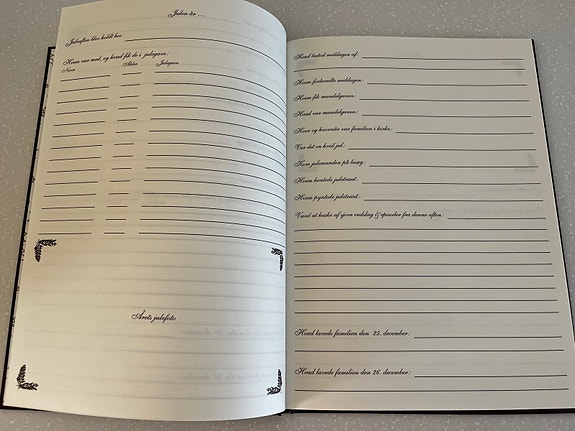 Julen år ....
Juleaften blev holdt hos:
Hvem var med, og hvad fik de i julegave:
Navn Alder Julegave
Årets julefoto
Hvad bestod middagen af:
Hvem forberedte middagen:
Hvem fik mandelgaven:
Hvad var mandelgaven:
Hvor og hvornår var familien i kirke:
Var det en hvid jul:
Kom julemanden på besøg:
Hvem hentede juletræet:
Hvem pyntede juletræet:
Værd at huske af sjove indslag & episoder fra denne aften:
Hvad lavede familien den 25. december:
Hvad lavede familien den 26. december: